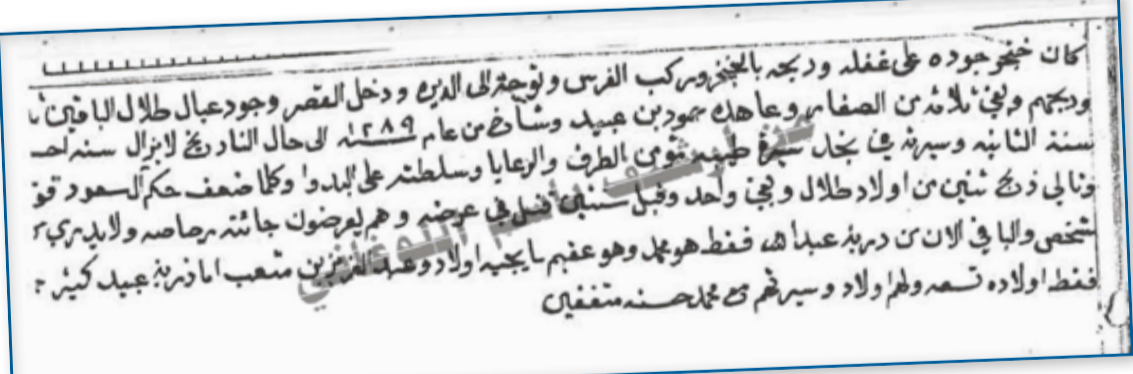 كان خنجر جوده على غفله ودبحه بالخنجر وركب الفرس وتوجه الى الديره ودخل القصر وجود عيال طلال الباقين
ودبحهم وبقي ثلاثة من الصغار وعاهده حمود بن عبيد وشاخ من عام ١٢٨٩ الى حال التاريخ لايزال سنه
سنة الثانيه وسيرته في نجد سيرة طيبه الطرف والرعايا وسلطته على البدو وكلما ضعف حكم السعود
وتالي ذبح ثنين من اولاد طلال وبقي واحد وقبل سنتين في عرضه وهم يعرضون جائته رصاصه ولايدري
شخص والباقي الان من ذرية عبدالله فقط هو محمد وهو عقيم ما يجيه اولاد وعبدالعزيز بن متعب اما ذرية عبيد كثير
فقط اولاده تسعه ولهم اولاد وسيرتهم مع محمد حسنه متفقين